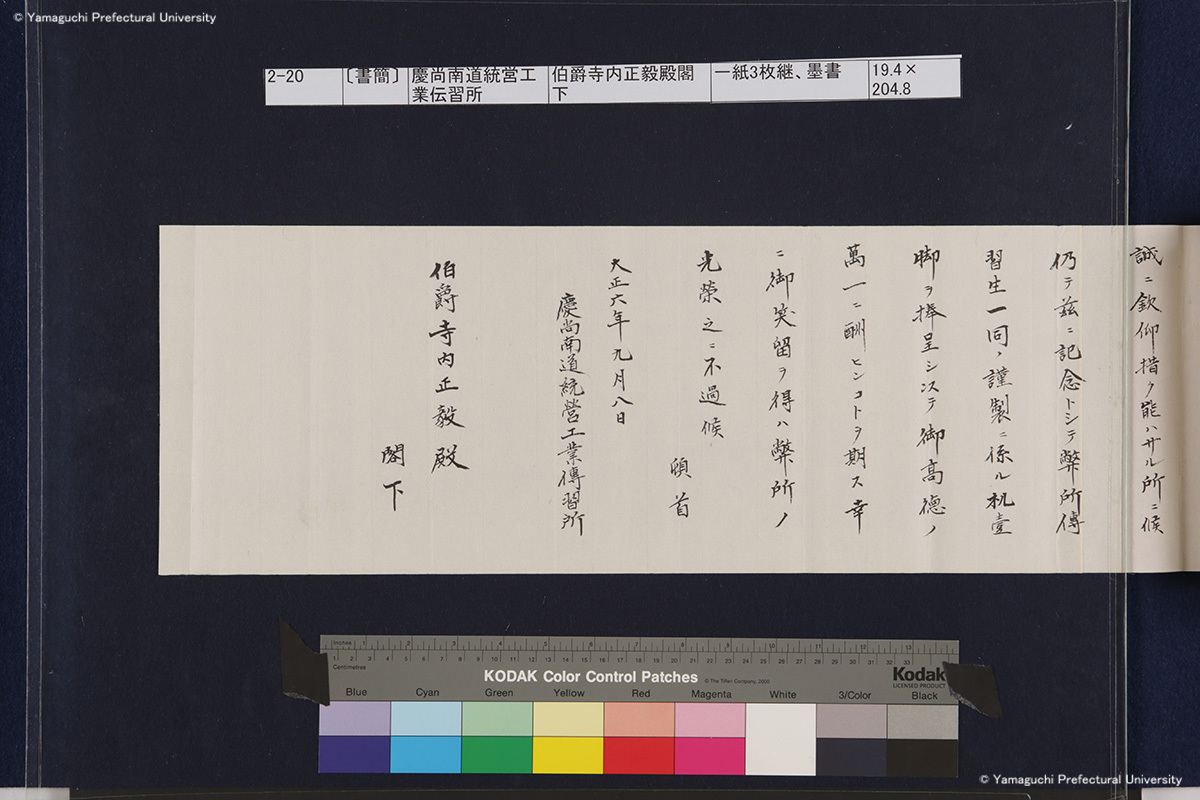 © Yamaguchi Prefectural University
2-20
〔書簡〕
慶尚南道統営工
業伝習所
伯爵寺内正毅殿閣
下
一紙3枚継、墨書
19.4×
204.8
誠ニ欽仰措ク能ハサル所ニ候
仍テ茲ニ記念トシテ弊所傳
習生一同ノ謹製ニ係ル机壹
脚ヲ捧呈シ以テ御高德ノ
萬一ニ酬ヒンコトヲ期ス幸
ニ御笑留ヲ得ハ弊所ノ
光榮之ニ不過候
頓首
大正六年九月八日
慶尚南道統營工業傳習所
伯爵寺内正毅殿
閣下
Inches 1 2 3 4 5 6 7 8 9 10 11 12 13
Centimetres 1 2 3 4 5 6 7 8 9 10 11 12 13 14 15 16 17 18 19 20 21 22 23 24 25 26 27 28 29 30 31 32 33
KODAK Color Control Patches
© The Tiffen Company, 2000
Kodak
LICENSED PRODUCT
Blue Cyan Green Yellow Red Magenta White 3/Color Black
© Yamaguchi Prefectural University